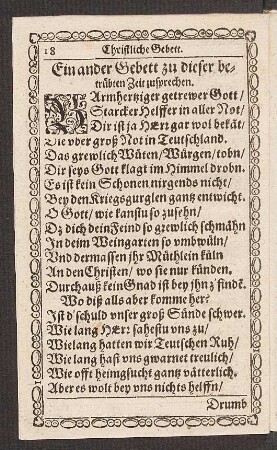 18 Christliche Gebett.
Ein ander Gebett zu dieser be-
trübten Zeit zusprechen.
BArmhertziger getrewer Gott/
Starcker Helffer in aller Not/
Dir ist ja HErr gar wol bekāt/
Die vber groß Not in Teutschland.
Das grewlich Wüten/Würgen/tobn/
Dir seys Gott klagt im Himmel drobn.
Es ist kein Schonen nirgends nicht/
Bey den Kriegsgurglen gantz entwicht.
O Gott/ wie kanstu so zusehn/
Dz dich dein Feind so grewlich schmähn
In deim Weingarten so vmbwüln/
Vnd dermassen jhr Müthlein küln
An den Christen/ wo sie nur künden.
Durchauß kein Gnad ist bey jhn z'findē.
Wo diß alls aber komme her?
Ist d'schuld vnser groß Sünde schwer.
Wie lang HErr sahestu vns zu/
Wie lang hatten wir Teutschen Ruh/
Wie lang hast vns gwarnet treulich/
Wie offt heimgsucht gantz vätterlich.
Aber es wolt bey vns nichts helffn/
Drumb